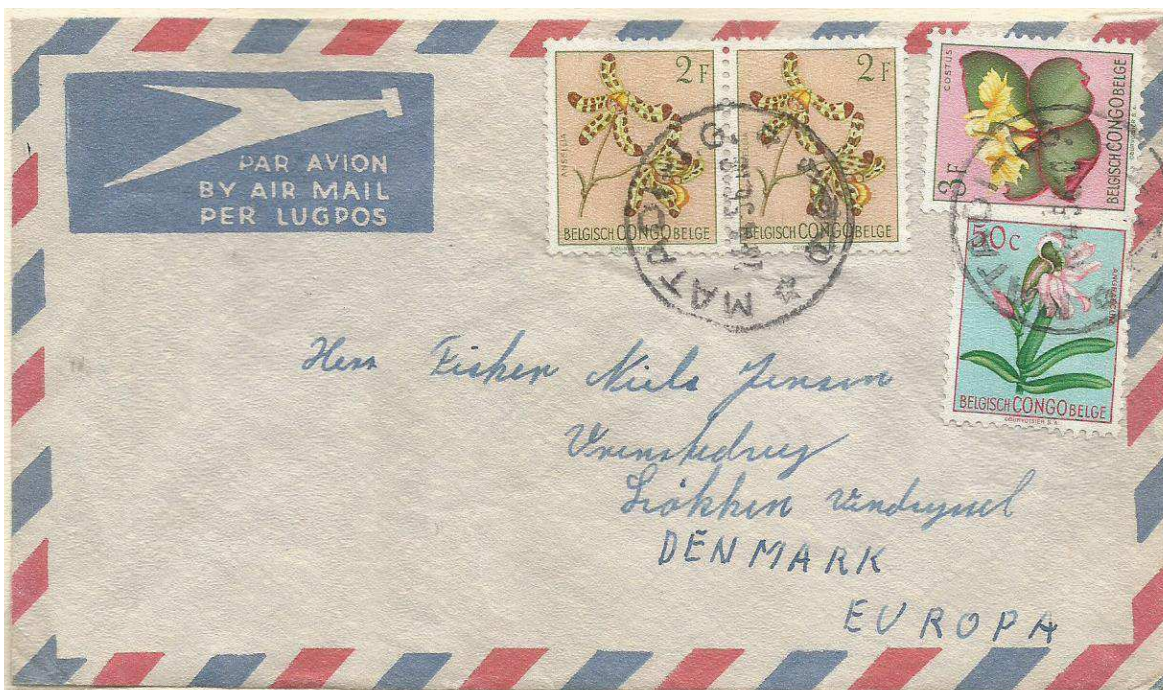 PAR AVION
BY AIR MAIL
PER LUGPOS
2F
ANSELLIA
BELGISCH CONGO BELGE
2F
BELGISCH CONGO BELGE
COSTUS
3F
BELGISCH CONGO BELGE
50c
BELGISCH CONGO BELGE
COURVOISIER S.A.
MATADI
Herr Fisker Niels Jensen
Løkken Vendsyssel
DENMARK
EUROPA